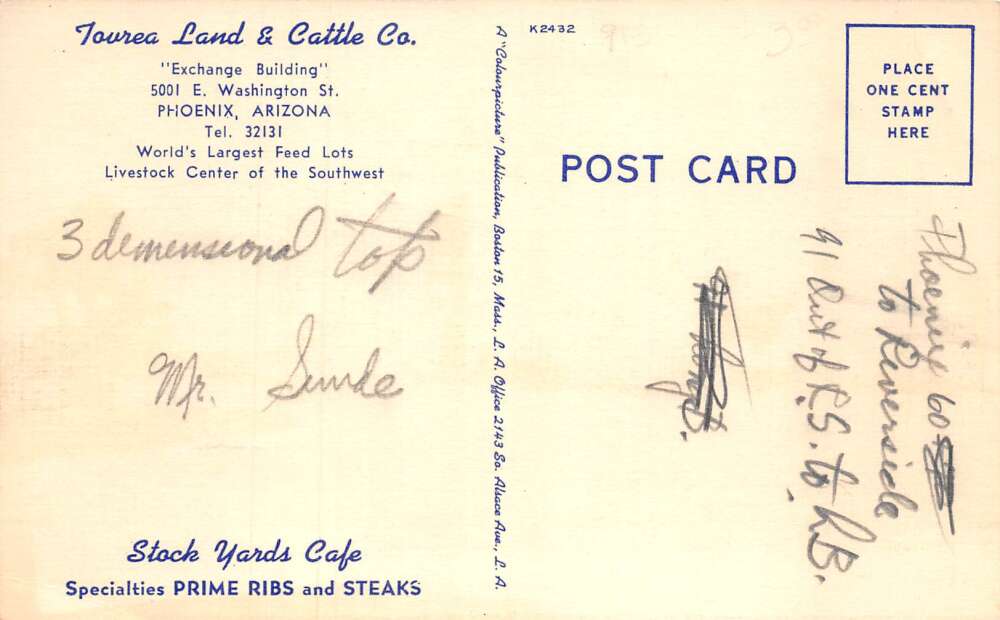 Tovrea Land & Cattle Co.
"Exchange Building"
5001 E. Washington St.
PHOENIX, ARIZONA
Tel. 32131
World's Largest Feed Lots
Livestock Center of the Southwest
3 demensional top
Mr. Sunde
Stock Yards Cafe
Specialties PRIME RIBS and STEAKS
A "Colourpicture" Publication, Boston 15, Mass., L. A. Office 2143 So. Alsace Ave., L. A.
K2432
POST CARD
PLACE
ONE CENT
STAMP
HERE
Phoenix 60
to Riverside
91 Out of R.S. to L.B.